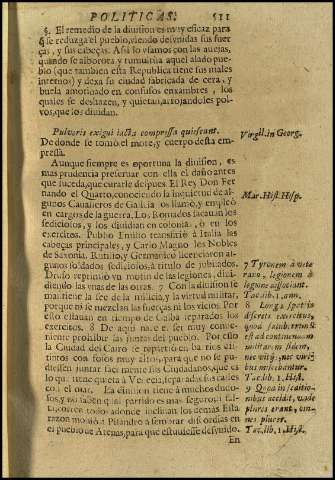 POLITICAS. 511
§. El remedio de la diuision es muy eficaz para
q̃ se reduzga el pueblo, viendo desunidas sus fuer
ças, y sus cabeças. Assi lo vsamos con las auejas,
quando se alborota, y tumultua aquel alado pue-
blo (que tambien esta Republica tiene sus males
internos) y dexa su ciudad fabricada de cera, y
buela amotinado en confusos enxambres, los
quales se deshazen, y quietan, arrojandoles pol-
vos, que los diuidan.
Pulveris exigui iacta compressa quiescunt.
Virgil. in Georg.
De donde se tomò el mote, y cuerpo desta em-
pressa.
Aunque siempre es oportuna la diuision, es
mas prudencia preservar con ella el daño antes
que suceda, que curarle despues. El Rey Don Fer
nando el Quarto, conociendo la inquietud de al-
Mar. Hist. Hisp.
gunos Caualleros de Galicia, los llamò, y empleò
en cargos de la guerra. Los Romanos sacauan los
sediciosos, y los diuidian en colonias, ò en los
exercitos. Publio Emilio transfirió à Italia las
cabeças principales, y Carlo Magno los Nobles
de Saxonia. Rutilio, y Germanico licenciaron al-
gunos soldados sediciosos, à titulo de jubilados.
Druso reprimiò vn motin de las legiones, diui-
diendo las vnas de las otras. 7 Con la diuision se
mantiene la fee de la milicia, y la virtud militar,
porque ni se mezclan las fuerças, ni los vicios. Por
esto estauan en tiempo de Galba separados los
exercitos. 8 De aqui nace el ser muy conue-
niente prohibir las juntas del pueblo. Por esto
la Ciudad del Cairo se repartiò en barrios dis-
tintos con fosos muy altos, para que no se pu-
diessen juntar facilmente sus Ciudadanos, que es
lo que
razon moviò à Pisandro a sembrar discordias en
el pueblo de Atenas, para que estuuiesse desunido.
En
7 Tyronem à vete
rano, legionem à
legione dissociant.
Tac. lib. 1. ann.
8 Longis spatiis
discreti exercitus,
quod saluberrimũ
est ad continendam
militarem fidem,
nec vitijs, nec viribus
miscebantur.
Tac. lib. 1. Hist.
Tac. lib. 1. Hist.